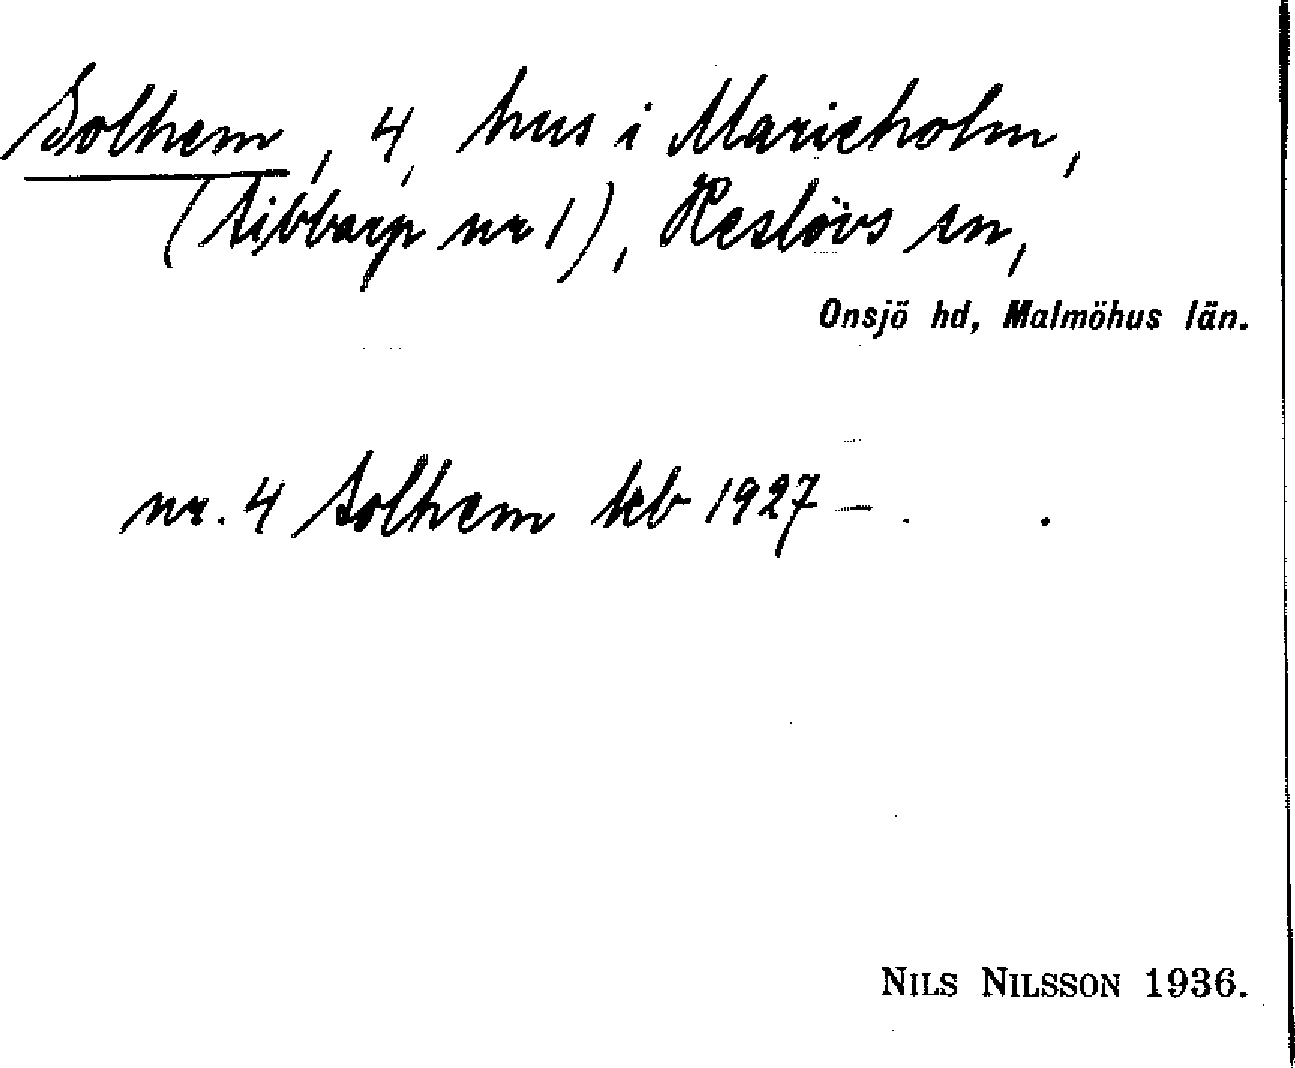 Solhem, 4, hus i Marieholm,
(Sibbarp nr 1), Reslövs sn,
Onsjö hd, Malmöhus län.
nr. 4 Solhem kb 1927 –
NILS NILSSON 1936.